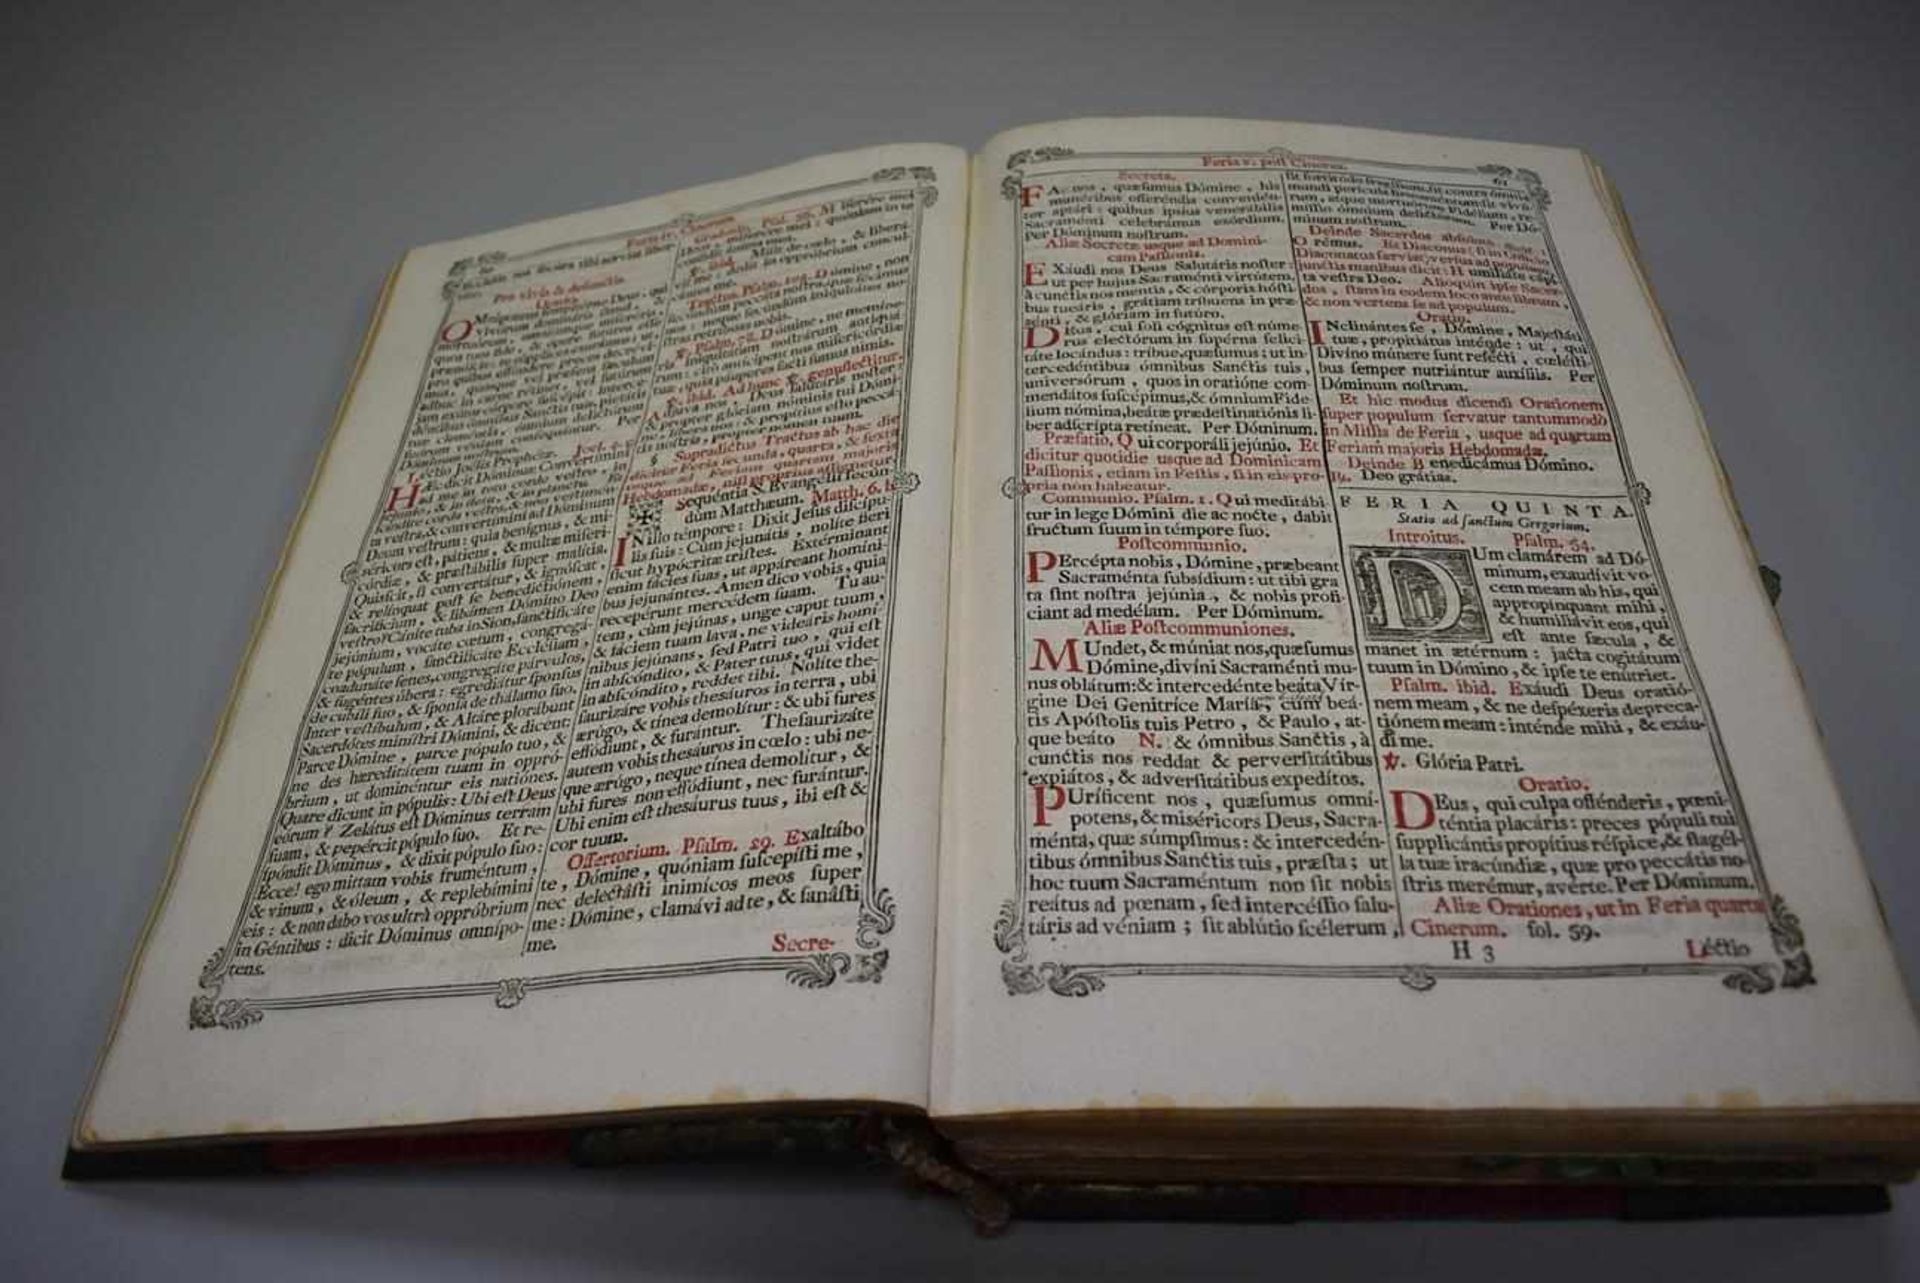 60
Feria IV. Cinerum.
Pro vivis & defunctis
Oratio.
OMnipotens sempiterne Deus, qui
vivorum domináris simul, &
Dóminum nostrum.
Léctio Joélis Prophétæ. Joel. 2. c
HÆc dicit Dóminus: Convertímini
ad me in toto corde vestro, in
jejúnio, & in fletu, & in planctu. Et
scíndite corda vestra, & non vestimén
ta vestra, & convertímini ad Dóminum
Deum vestrum: quia benígnus, & mi-
séricors est, pátiens, & multæ miseri-
córdiæ, & præstábilis super malítia.
Quis scit, si convertátur, & ignóscat,
& relínquat post se benedictiónem,
sacrifícium, & libámen Dómino Deo
vestro? Cánite tuba in Sion, sanctificáte
jejúnium, vocáte cœtum, congregá-
te pópulum, sanctificáte Ecclésiam,
coadunáte senes, congregáte párvulos,
& sugéntes úbera: egrediátur sponsus
de cubíli suo, & sponsa de thálamo suo.
Inter vestíbulum, & Altáre plorábunt
Sacerdótes minístri Dómini, & dicent:
Parce Dómine, parce pópulo tuo, &
ne des hæreditátem tuam in oppró-
brium, ut dominéntur eis natiónes.
Quare dicunt in pópulis: Ubi est Deus
eórum? Zelátus est Dóminus terram
suam, & pepércit pópulo suo. Et re-
spóndit Dóminus, & dixit pópulo suo:
Ecce! ego mittam vobis fruméntum,
& vinum, & óleum, & replebímini
eis: & non dabo vos ultrà oppróbrium
in Géntibus: dicit Dóminus omnípo-
tens.
Graduale. Psal. 56. Miserére mei
Deus, miserére mei: quóniam in te
confídit ánima mea.
℣. ibid. Misit de cœlo, & liberá-
vit me: dedit in oppróbrium concul-
cántes me.
Tractus. Psalm. 102. Dómine, non
secúndùm peccáta nostra, quæ fécimus
nos: neque secúndùm iniquitátes no-
stras retríbuas nobis.
℣. Psalm. 78. Dómine, ne memíne-
ris iniquitátum nostrárum antiquá-
rum: citò antícipent nos misericórdiæ
tuæ, quia páuperes facti sumus nimis.
℣. ibid. Ad hunc ℣. genuflectitur.
Adjuva nos, Deus salutáris noster:
& propter glóriam nóminis tui Dómi-
ne, líbera nos: & propítius esto peccá-
tis nostris, propter nomen tuum.
§ Supradictus Tractus ab hac die
dicitur Feria secunda, quarta, & sexta
usque ad Feriam quartam majoris
Hebdomadæ, nisi proprius assignetur.
Sequéntia S. Evangélii secún-
dùm Matthæum. Matth. 6. b.
IN illo témpore: Dixit Jesus discípu-
lis suis: Cùm jejunátis, nolíte fíeri
sicut hypócritæ tristes. Extérminant
enim fácies suas, ut appáreant homíni-
bus jejunántes. Amen dico vobis, quia
recepérunt mercédem suam. Tu au-
tem, cùm jejúnas, unge caput tuum,
& fáciem tuam lava, ne videáris homí-
nibus jejúnans, sed Patri tuo, qui est
in abscóndito, & Pater tuus, qui videt
in abscóndito, reddet tibi. Nolíte the-
saurizáre vobis thesáuros in terra, ubi
ærúgo, & tínea demolítur: & ubi fures
effódiunt, & furántur. Thesaurizáte
autem vobis thesáuros in cœlo: ubi ne-
que ærúgo, neque tínea demolítur, &
ubi fures non effódiunt, nec furántur.
Ubi enim est thesáurus tuus, ibi est &
cor tuum.
Offertorium. Psalm. 29. Exaltábo
te, Dómine, quóniam suscepísti me,
nec delectásti inimícos meos super
me: Dómine, clamávi ad te, & sanásti
me.
Secre-
Feria v. post Cineres.
61
Secreta.
FAc nos, quæsumus Dómine, his
munéribus offeréndis convenién-
ter aptári: quibus ipsíus venerábilis
Sacraménti celebrámus exórdium.
Per Dóminum nostrum.
Aliæ Secretæ usque ad Domini-
cam Passionis.
EXáudi nos Deus Salutáris noster:
ut per hujus Sacraménti virtútem,
à cunctis nos mentis, & córporis hósti-
bus tueáris, grátiam tríbuens in præ-
sénti, & glóriam in futúro.
DEus, cui soli cógnitus est núme-
rus electórum in supérna felici-
táte locándus: tríbue, quæsumus; ut in-
tercedéntibus ómnibus Sanctis tuis,
universórum, quos in oratióne com-
mendátos suscépimus, & ómnium Fide-
lium nómina, beátæ prædestinatiónis li-
ber adscrípta retíneat. Per Dóminum.
Præfatio. Qui corporáli jejúnio. Et
dicitur quotidie usque ad Dominicam
Passionis, etiam in Festis, si in eis pro-
pria non habeatur.
Communio. Psalm. 1. Qui meditábi-
tur in lege Dómini die ac nocte, dabit
fructum suum in témpore suo.
Postcommunio.
PErcépta nobis, Dómine, præbeant
Sacraménta subsídium: ut tibi gra
ta sint nostra jejúnia, & nobis profí-
ciant ad medélam. Per Dóminum.
Aliæ Postcommuniones.
MUndet, & múniat nos, quæsumus
Dómine, divíni Sacraménti mu-
nus oblátum: & intercedénte beáta Vír-
gine Dei Genitríce María, cum beá-
tis Apóstolis tuis Petro, & Paulo, at-
que beáto N. & ómnibus Sanctis, à
cunctis nos reddat & perversitátibus
expiátos, & adversitátibus expedítos.
PUríficent nos, quæsumus omní-
potens, & miséricors Deus, Sacra-
ménta, quæ súmpsimus: & intercedén-
tibus ómnibus Sanctis tuis, præsta; ut
hoc tuum Sacraméntum non sit nobis
reátus ad pœnam, sed intercéssio salu-
táris ad véniam; sit ablútio scélerum,
sit fortitúdo fragílium, sit contra ómnia
mundi perícula firmaméntum: sit vivó-
rum, atque mortuórum Fidélium, re-
míssio ómnium delictórum. Per Dó-
minum nostrum.
Deinde Sacerdos absolutè dicit:
Orémus. Et Diaconus, si in officio
Diaconatus serviat, versus ad populum,
junctis manibus dicit: Humiliáte cápi-
ta vestra Deo. Alioquin ipse Sacer-
dos, stans in eodem loco ante librum,
& non vertens se ad populum.
Oratio.
INclinántes se, Dómine, Majestáti
tuæ, propitiátus inténde: ut, qui
Divíno múnere sunt refécti, cœlésti-
bus semper nutriántur auxíliis. Per
Dóminum nostrum.
Et hic modus dicendi Orationem
super populum servatur tantummodò
in Missis de Feria, usque ad quartam
Feriam majoris Hebdomadæ.
Deinde Benedicámus Dómino.
℟. Deo grátias.
FERIA QUINTA.
Statio ad sanctum Gregorium.
Introitus. Psalm. 54.
DUm clamárem ad Dó-
minum, exaudívit vo-
cem meam ab his, qui
appropínquant mihi,
& humiliávit eos, qui
est ante sæcula, &
manet in ætérnum: jacta cogitátum
tuum in Dómino, & ipse te enútriet.
Psalm. ibid. Exáudi Deus oratió-
nem meam, & ne despéxeris depreca-
tiónem meam: inténde mihi, & exáu-
di me.
℣. Glória Patri.
Oratio.
DEus, qui culpa offénderis, pœni-
téntia placáris: preces pópuli tui
supplicántis propítius réspice, & flagél-
la tuæ iracúndiæ, quæ pro peccátis no-
stris merémur, avérte. Per Dóminum.
Aliæ Orationes, ut in Feria quarta
Cinerum. fol. 59.
H 3
Léctio